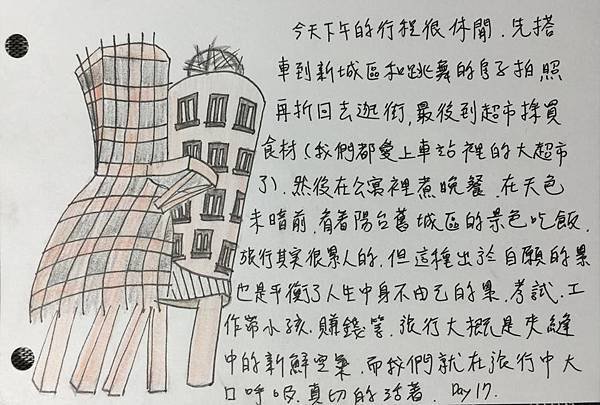 今天下午的行程很休閒．先搭
車到新城區和跳舞的房子拍照
再折回去逛街,最後到超市採買
食材(我們都愛上車站裡的大超市
了)．然後在公寓裡煮晚餐．在天色
未暗前,看着陽台舊城區的景色吃飯．
旅行其實很累人的．但這種出於自願的累
也是平衡了人生中身不由己的累．考試．工
作帶小孩．賺錢等．旅行大概是夾縫
中的新鮮空氣．而我們就在旅行中大
口呼吸．真切的活著．Day 17.